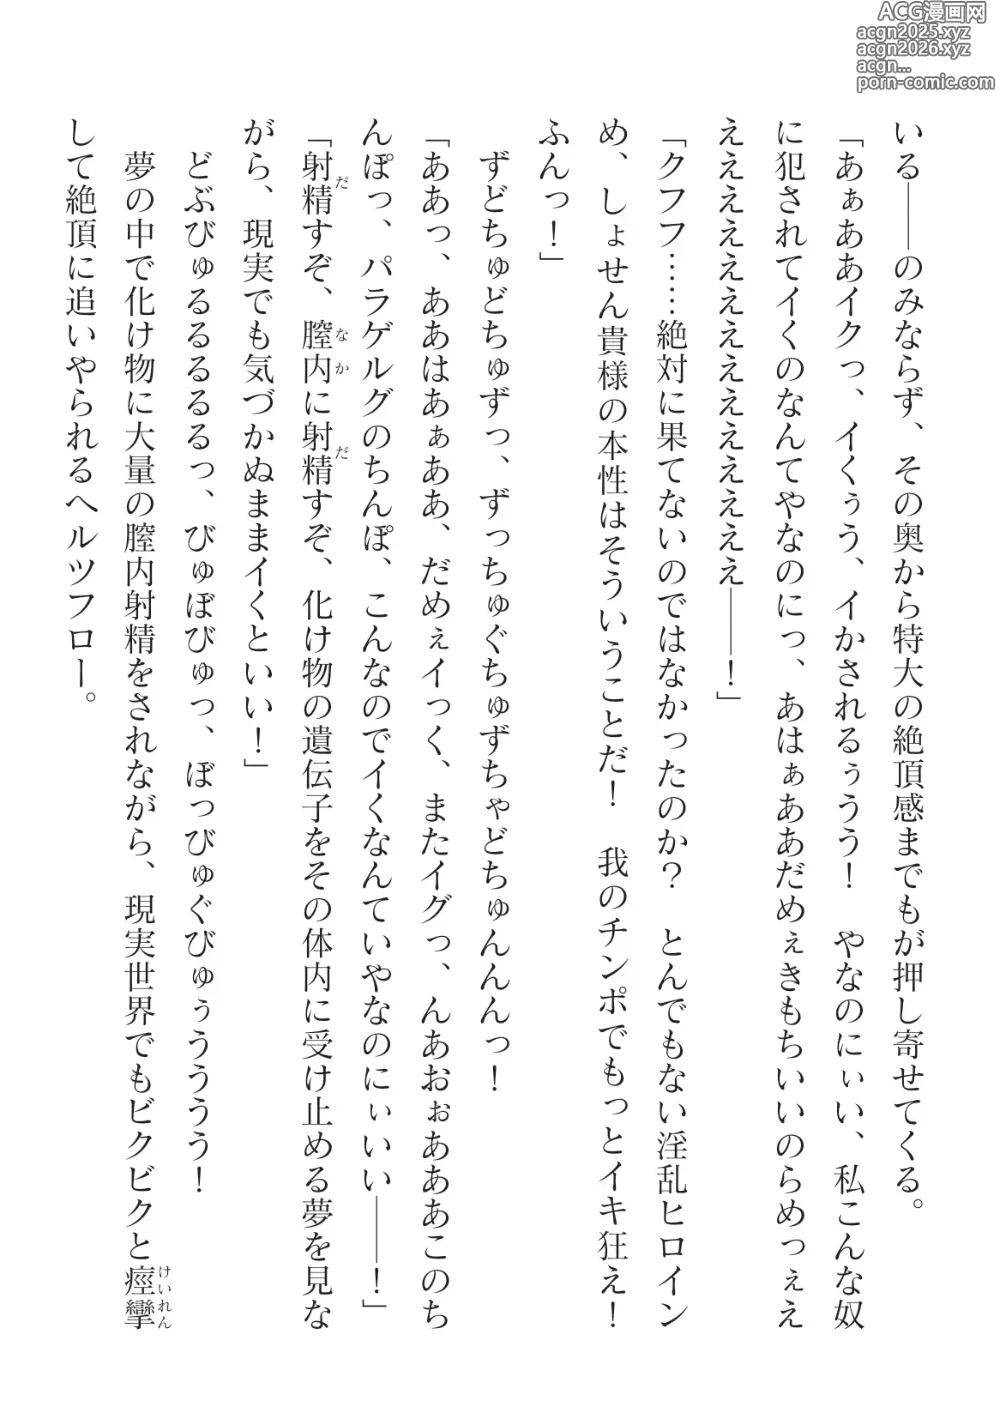 ACG漫画网
acgn2025.xyz
acgn2026.xyz
acgn...
porn-comic.com
いる――のみならず、その奥から特大の絶頂感までもが押し寄せてくる。
「あぁああイクっ、イくぅう、イかされるぅうう！　やなのにぃい、私こんな奴
に犯されてイくのなんてやなのにっ、あはぁああだめぇきもちいいのらめっぇえ
ええええええええええええええ――！」
「クフフ……絶対に果てないのではなかったのか？　とんでもない淫乱ヒロイン
め、しょせん貴様の本性はそういうことだ！　我のチンポでもっとイキ狂え！
ふんっ！」
ずどちゅどちゅずっ、ずっちゅぐちゅずちゃどちゅんんんっ！
「ああっ、ああはあぁああ、だめぇイっく、またイグっ、んあおぉあああこのち
んぽっ、パラゲルグのちんぽ、こんなのでイくなんていやなのにぃいい――！」
「射精すぞ、膣内に射精すぞ、化け物の遺伝子をその体内に受け止める夢を見な
がら、現実でも気づかぬままイくといい！」
どぶびゅるるるるるっ、びゅぼびゅっ、ぼっびゅぐびゅぅうううう！
夢の中で化け物に大量の膣内射精をされながら、現実世界でもビクビクと痙攣
して絶頂に追いやられるヘルツフロー。